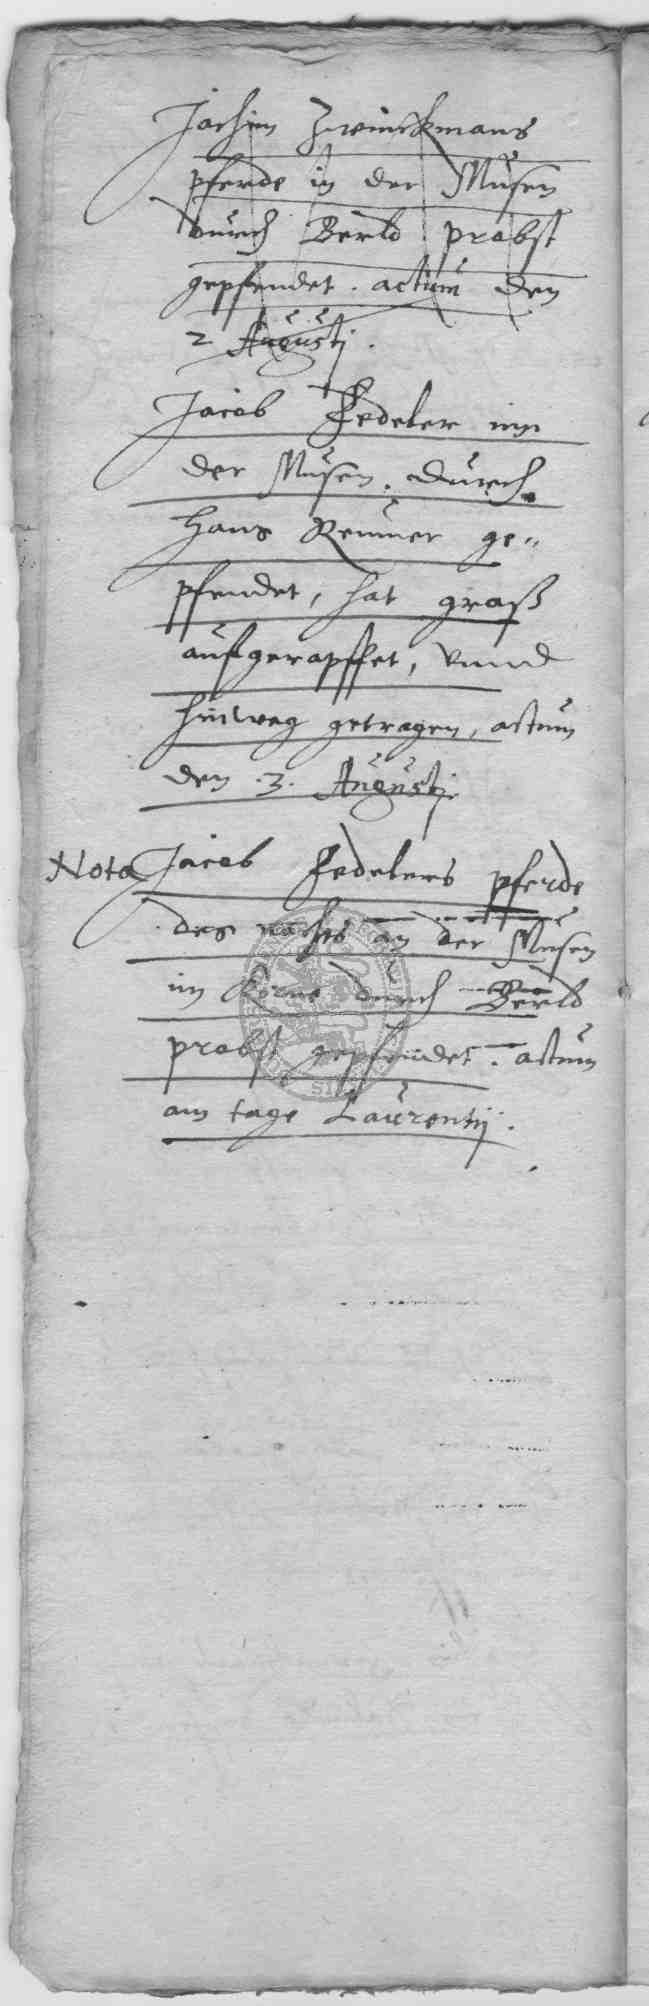 Jochim Zwinckmans
pferde in der Musen
durch Berld probst
gepfendet. actum den
2 Augusti.
Jacob Fedeler inn
der Musen. durch
Hans Remmer ge„
pfendet, hat graß
aufgerapffet, vnnd
hinweg getragen, actum
den .3. Augusti
Nota Jacob Fedelers pferde
des nachts an der Musen
im Korne durch Berld
probst gepfendet. actum
am tage Laurentij.